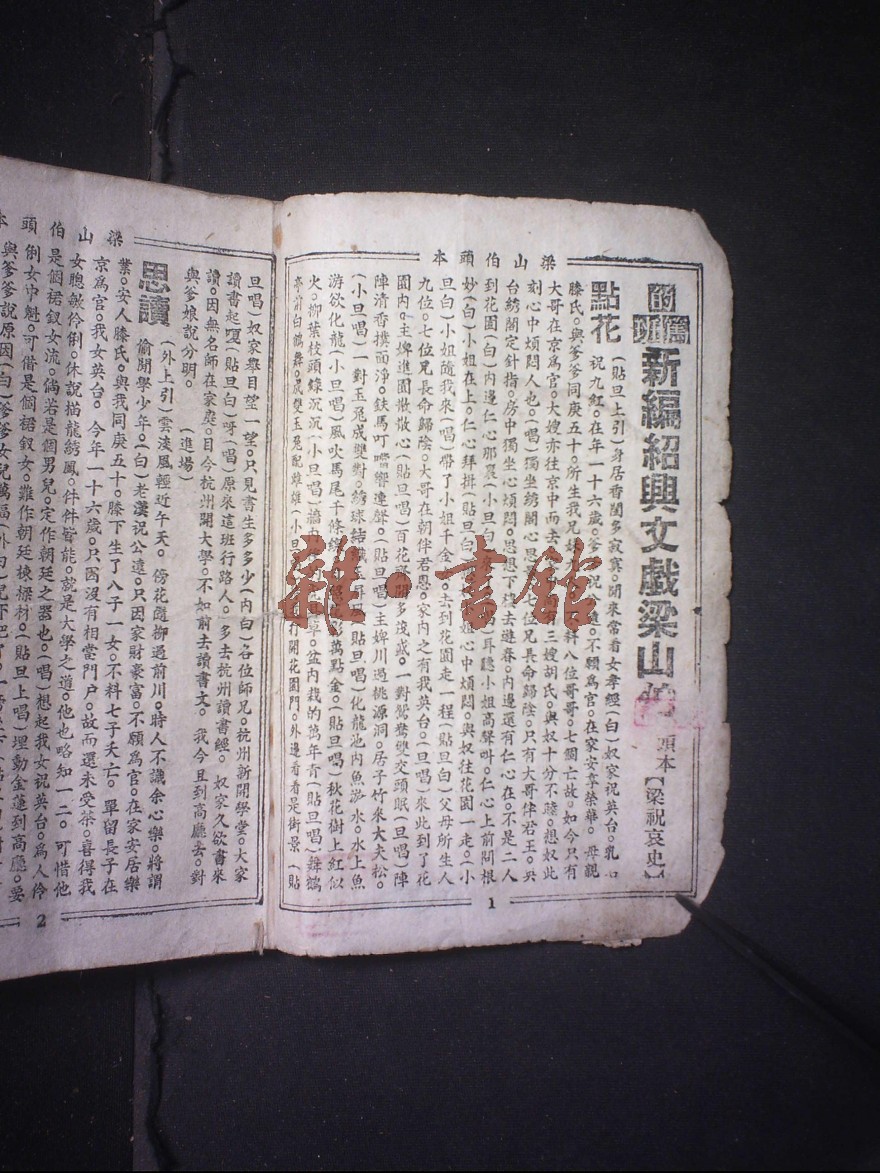 新編紹興文戲梁山
頭本【梁祝哀史】
梁山伯頭本
點花
(貼旦上引)身居香閣多寂寞。閒來常看女孝經(白)奴家祝英台。乳
祝九紅。在年一十六歲。爹祝公遠。不願爲官。在家安享榮華。母親
滕氏。與爹爹同庚五十。所生我兄妹九八位哥哥。七個亡故。如今只有
大哥在京爲官。大嫂亦往京中而去三嫂胡氏。與奴十分不睦。想奴此
刻心中煩悶人也。(唱)獨坐綉閣心思七位兄長命歸陰。只有大哥伴君王。
台綉閣定針指。房中獨坐心煩悶。思想下樓去遊春。內邊還有仁心在。不是二人
到花園(白)內邊仁心那裏(小旦白唱)耳聽小姐高聲叫。仁心上前問根
妙(白)小姐在上。仁心拜揖(貼旦白姐心中煩悶。與奴往花園一走。(小
旦白)小姐隨我來(唱)帶了小姐千金去。到花園走一程(貼旦白)父母所生人
九位。七位兄長命歸陰。大哥在朝伴君恩。家內之有我英台。(旦唱)來此到了花
園內。主婢進園散散心(貼旦唱)百花開多茂盛。一對鴛鴦雙交頭眠(旦唱)陣
陣清香撲面淨。鉄馬叮噹響連聲。(貼旦唱)主婢川過桃源洞。房子竹來大夫松。
(小旦唱)一對玉兔成雙對。綉球結織玉貼旦唱)化龍池內魚游水。水上魚
游欲化龍(小旦唱)風吹馬尾千條線影萬點金。(貼旦唱)秋花樹上紅似
火。柳葉枝頭綠沉沉(小旦唱)牆內草。盆內栽的萬年青(貼旦唱)舞鶴
亭前白鶴舞。成雙玉兔配雌雄(小旦打開花園門。外邊看看是街景(貼
旦唱)奴家舉目望一望。只見書生多多少(內白)各位師兄。杭州新開學堂。大家
讀書起(貼旦白)呀(唱)原來這班行路人。多去杭州讀書經。奴家久欲書來
讀。因無名師在家庭。目今杭州開大學。不如前去讀書文。我今且到高廳去。對
與爹娘說分明。(進場)
1
梁山伯頭本
思讀
(外上引)雲淡風輕近午天。傍花隨柳過前川。時人不識余心樂。將謂
偷閒學少年。(白)老漢祝公遠。只因家財豪富。不願爲官。在家安居樂
業。安人滕氏。與我同庚五十。膝下生了八子一女。不料七子夭亡。單留長子在
京爲官。我女英台。今年一十六歲。只因沒有相當門戶。故而還未受茶。喜得我
女聰敏伶俐。休說描龍綉鳳。件件皆能。就是大學之道。他也略知一二。可惜他
是個裙釵女流。倘若是個男兒。定作朝廷之器也。(唱)想起我女祝英台。爲人伶
俐女中魁。可惜是個裙釵女。難作朝廷棟樑材(貼旦上唱)埋動金蓮到高廳。要
與爹爹說原因(白)爹爹女兒萬福(外白)
2
雜·書館